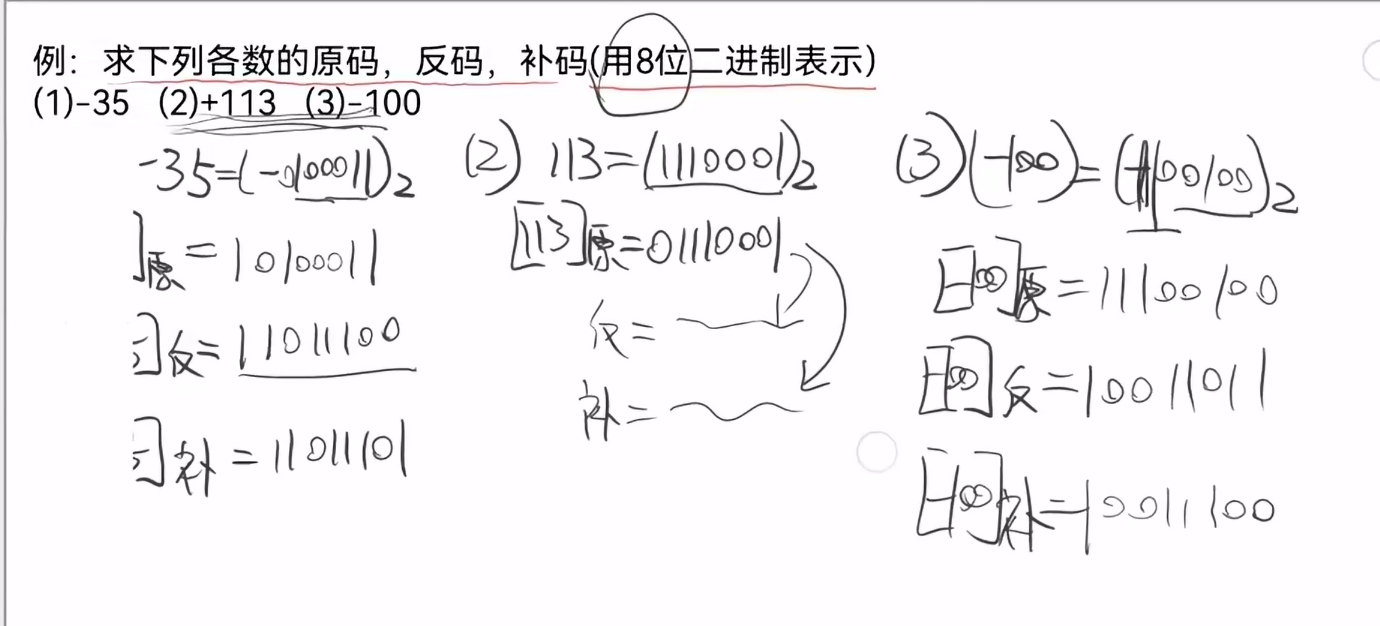 例：求下列各数的原码，反码，补码(用8位二进制表示)
(1)-35 (2)+113 (3)-100
-35=(-0100011)₂
]原=10100011
]反=11011100
]补=11011101
(2) 113=(1110001)₂
[113]原=01110001
反=
补=
(3)(-100)=(-1100100)₂
[-100]原=11100100
[-100]反=10011011
[-100]补=10011100